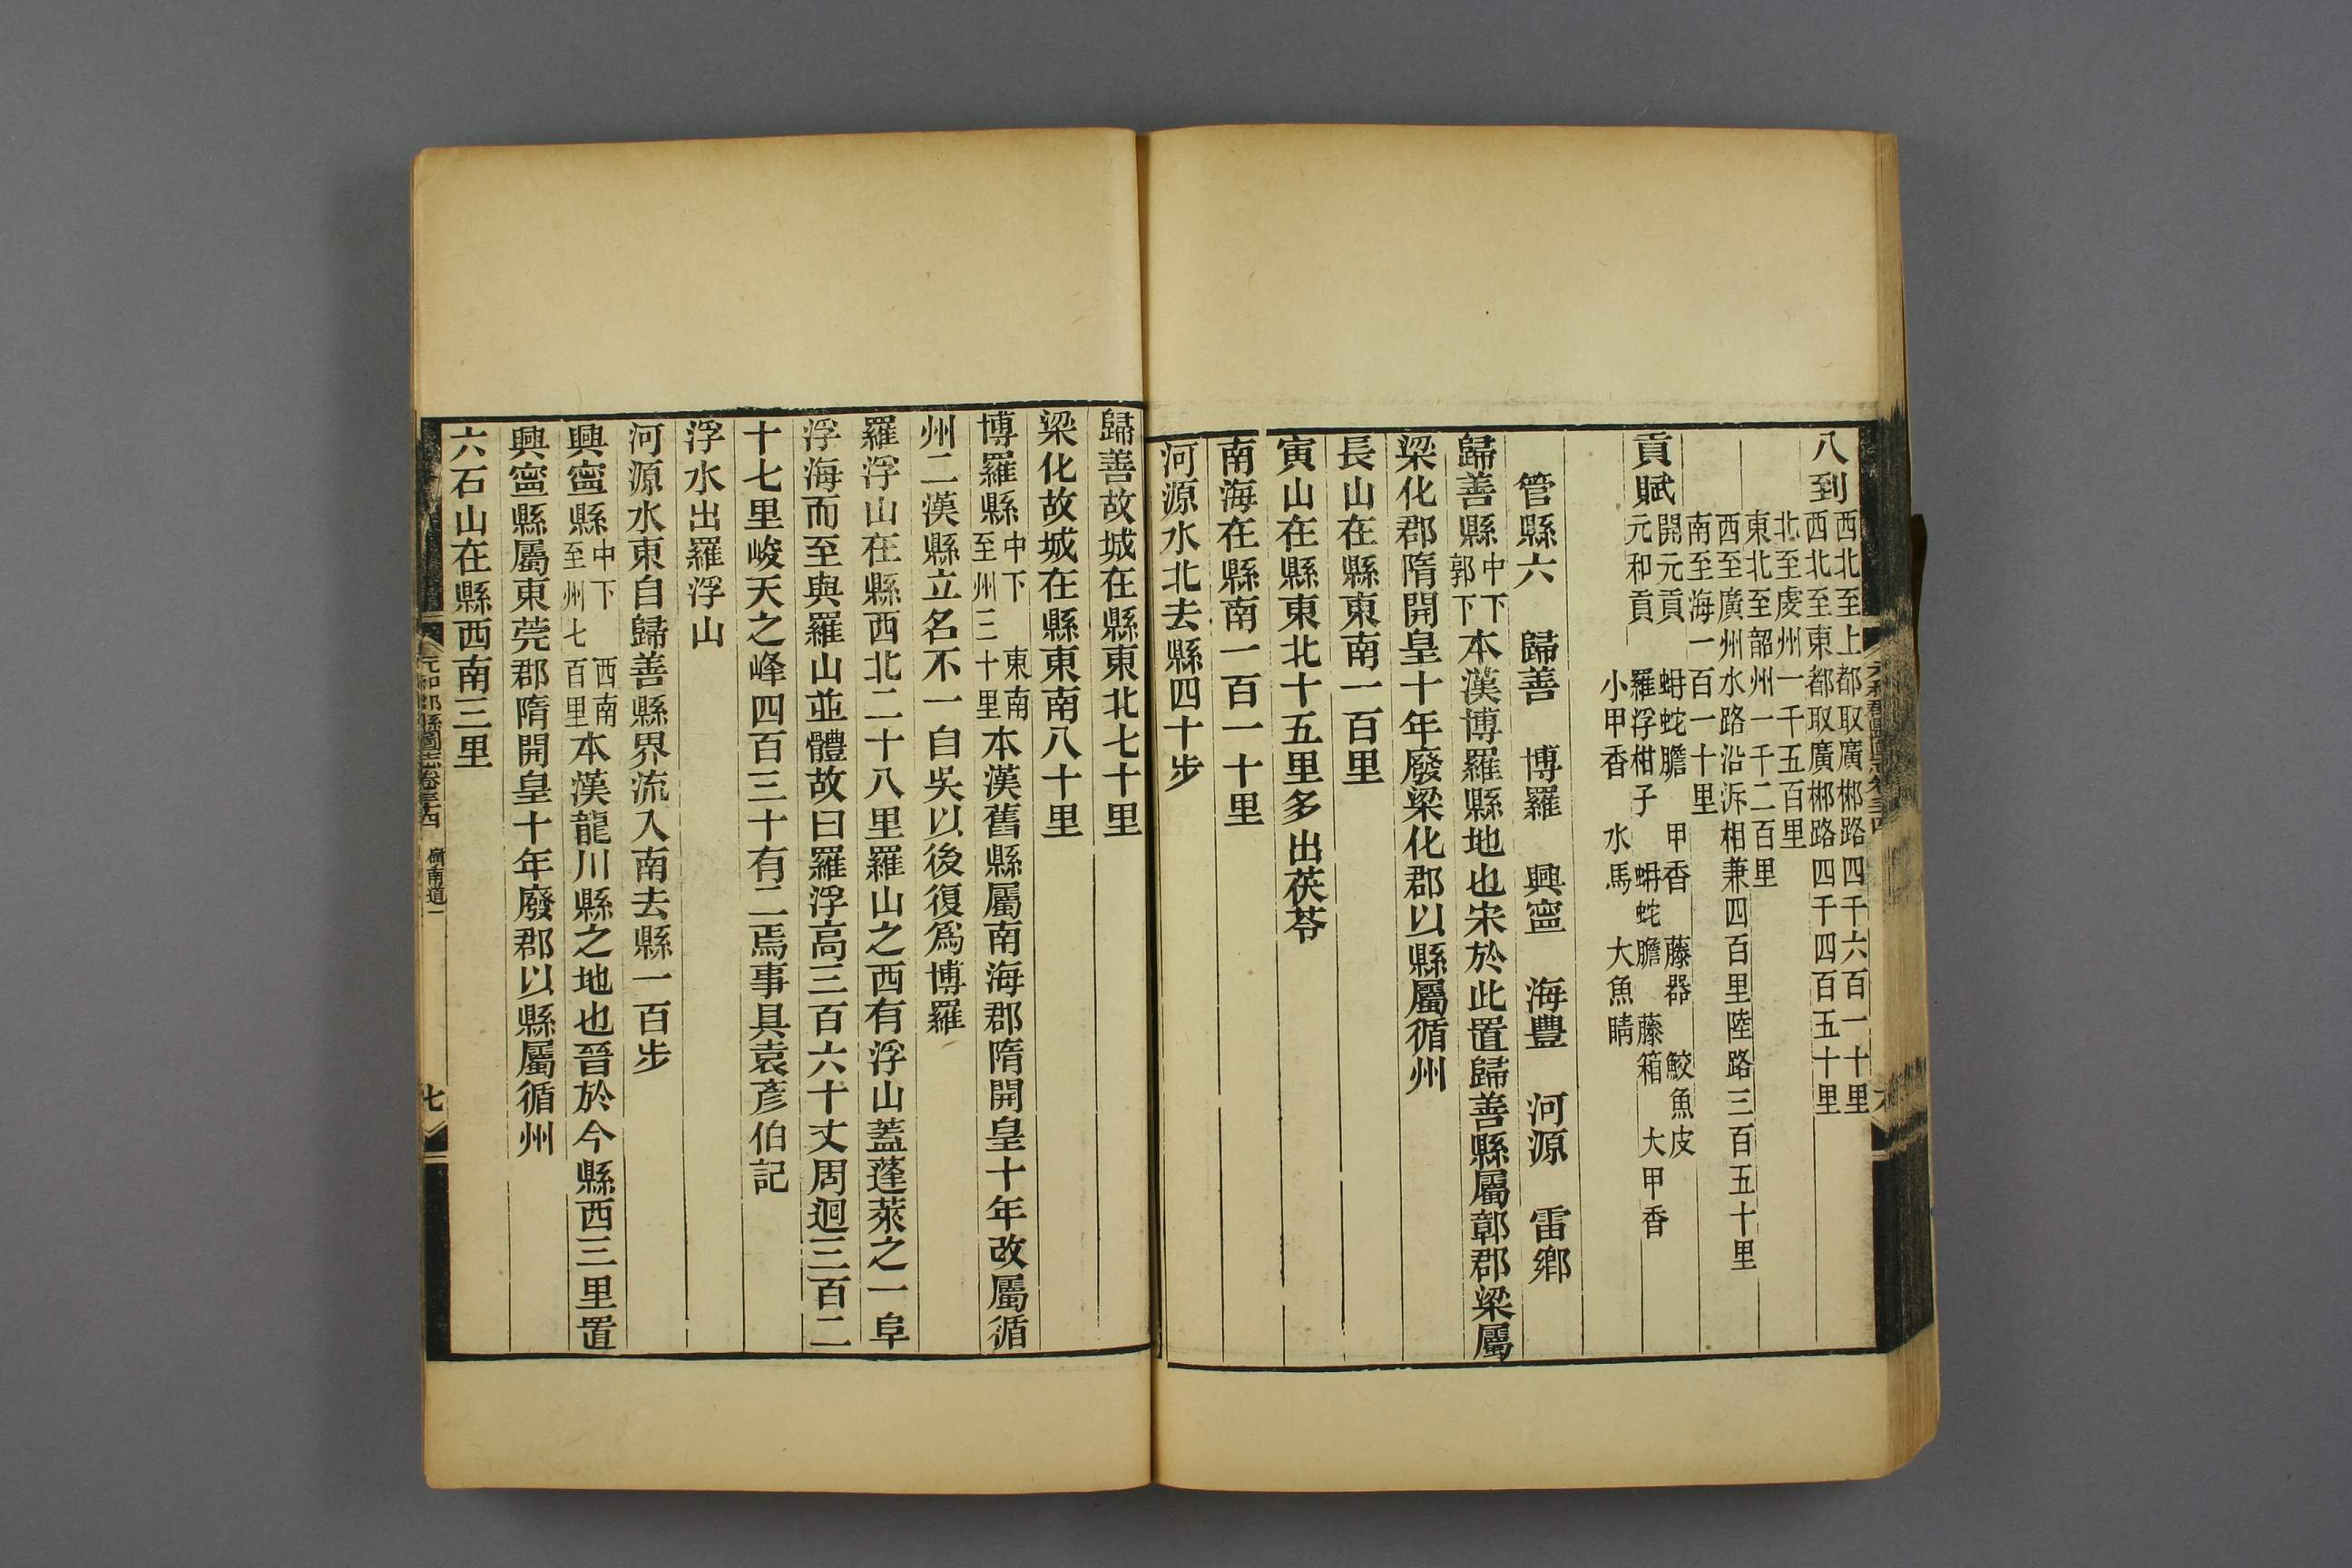 八到西北至上都取廣郴路四千六百一十里
西北至東都取廣郴路四千四百五十里
北至虔州一千五百里
東北至韶州一千二百里
西至廣州水路沿泝相兼四百里陸路三百五十里
南至海一百一十里
貢賦開元貢 蚺蛇膽 甲香 藤器 鮫魚皮
元和貢 羅浮柑子 蚺蛇膽 藤箱 大甲香
小甲香 水馬 大魚睛
管縣六 歸善 博羅 興寧 海豐 河源 雷鄉
歸善縣中下郭下本漢博羅縣地也宋於此置歸善縣屬鄣郡梁屬
梁化郡隋開皇十年廢梁化郡以縣屬循州
長山在縣東南一百里
寅山在縣東北十五里多出茯苓
南海在縣南一百一十里
河源水北去縣四十步
歸善故城在縣東北七十里
梁化故城在縣東南八十里
博羅縣中下東南至州三十里本漢舊縣屬南海郡隋開皇十年改屬循
州二漢縣立名不一自吳以後復爲博羅
羅浮山在縣西北二十八里羅山之西有浮山蓋蓬萊之一阜
浮海而至與羅山並體故曰羅浮高三百六十丈周迴三百二
十七里峻天之峰四百三十有二焉事具袁彥伯記
浮水出羅浮山
河源水東自歸善縣界流入南去縣一百步
興寧縣中下西南至州七百里本漢龍川縣之地也晉於今縣西三里置
興寧縣屬東莞郡隋開皇十年廢郡以縣屬循州
六石山在縣西南三里
元和郡縣圖志卷三十四 嶺南道一
七